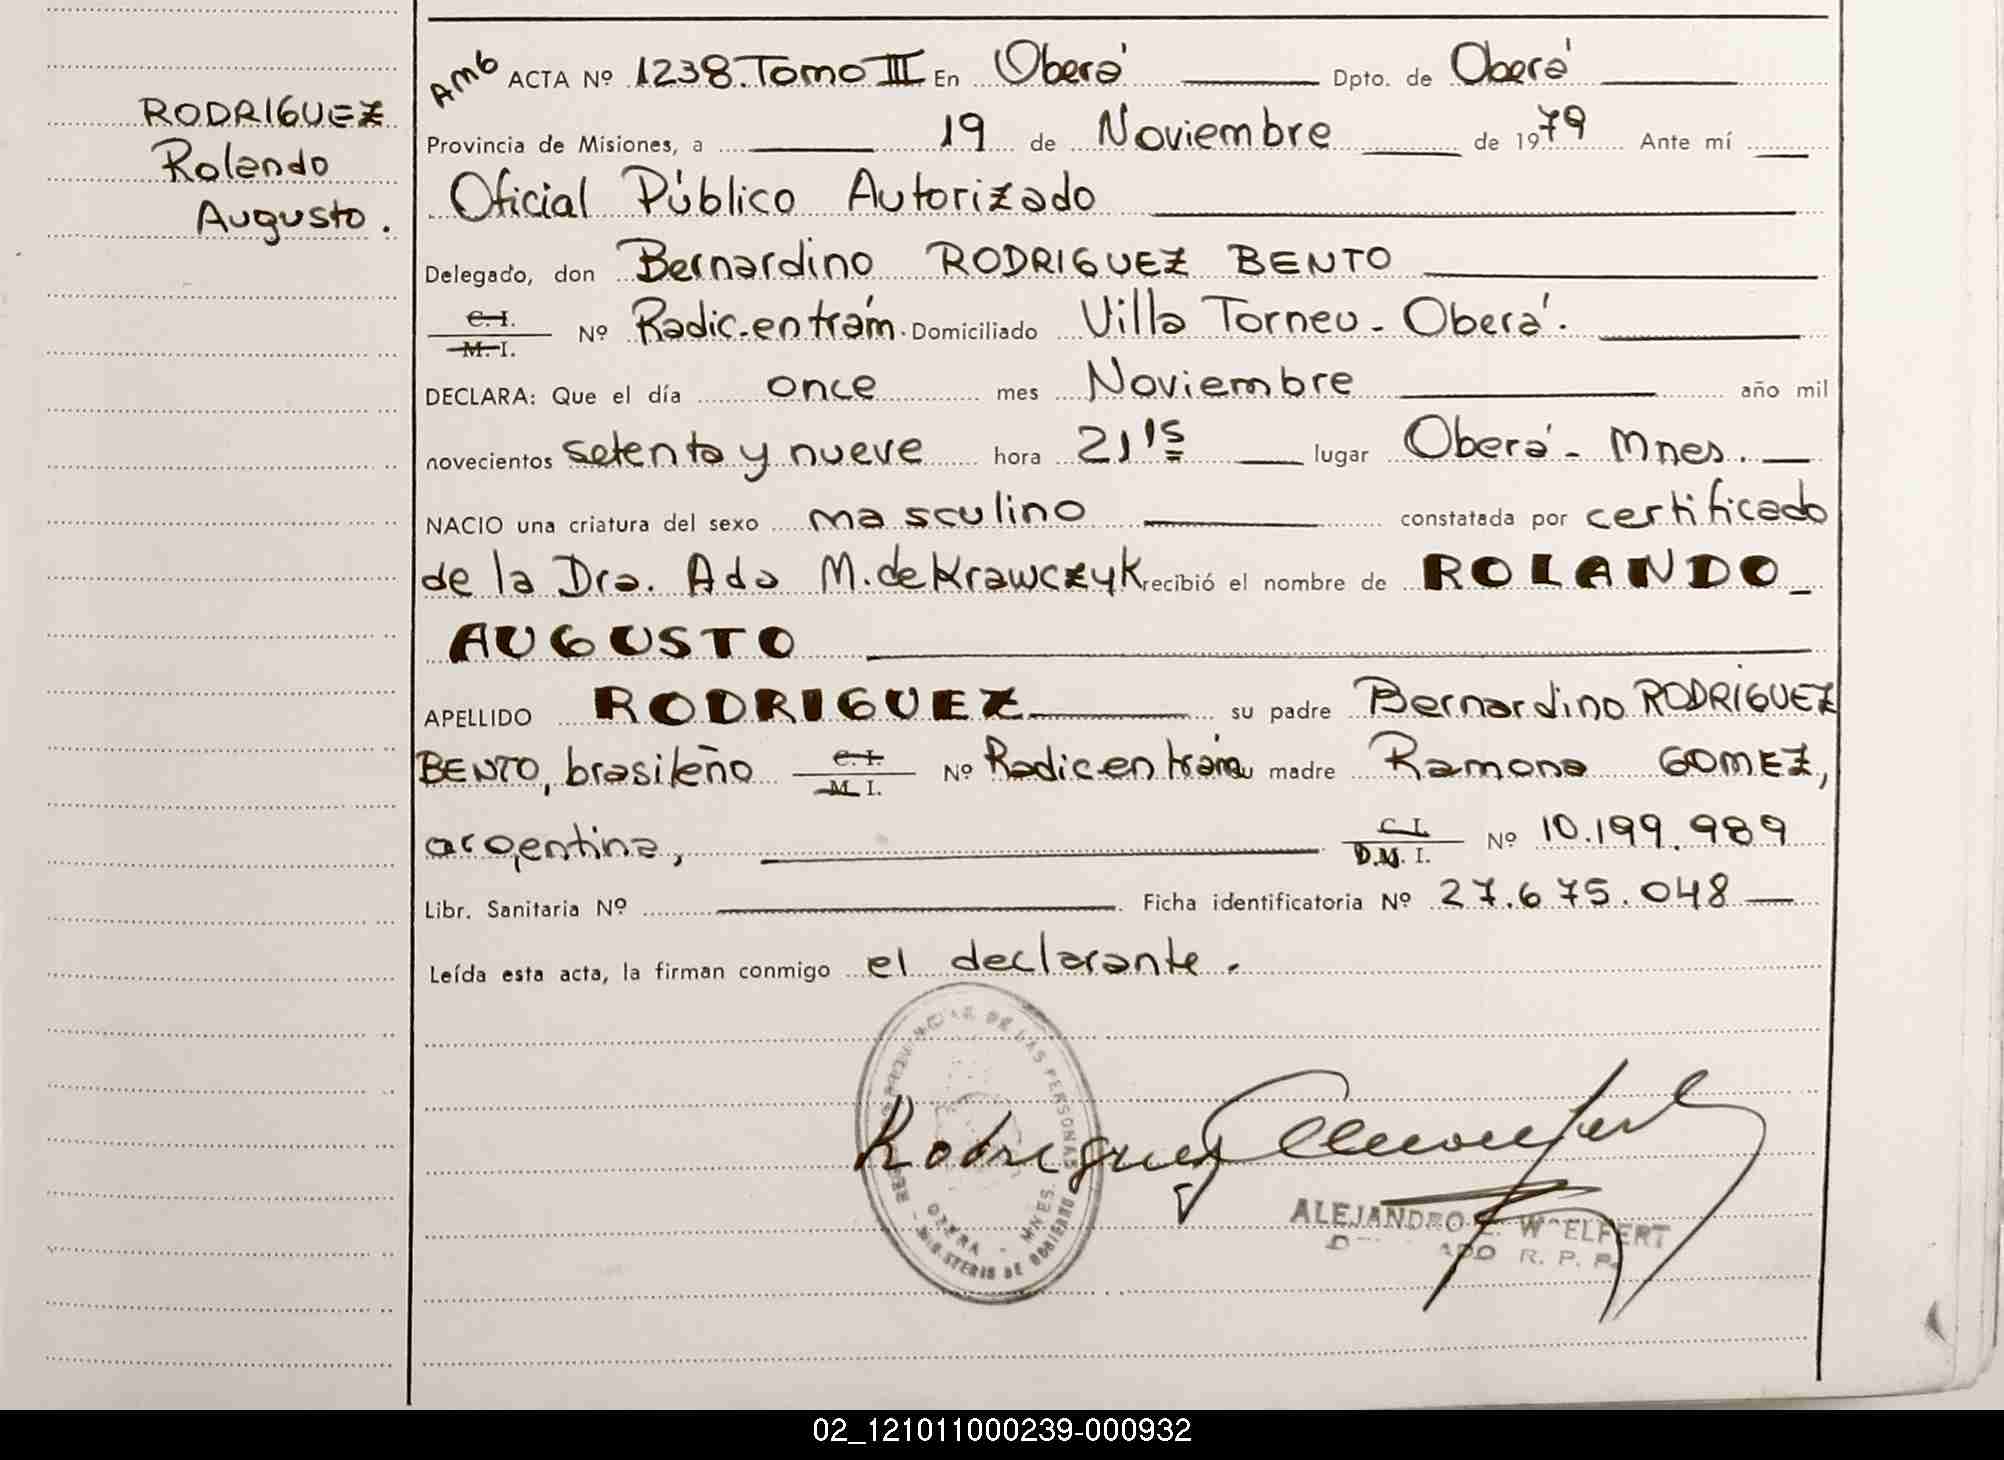 RODRIGUEZ
Rolando
Augusto.
Amb ACTA Nº 1238. Tomo III En Oberá Dpto. de Oberá
Provincia de Misiones, a 19 de Noviembre de 1979 Ante mí
Oficial Público Autorizado
Delegado, don Bernardino RODRIGUEZ BENTO
C. I. / M. I. Nº Radic. en trám. Domiciliado Villa Torneu - Oberá.
DECLARA: Que el día once mes Noviembre año mil
novecientos setenta y nueve hora 21 15 lugar Oberá - Mnes.
NACIO una criatura del sexo masculino constatada por certificado
de la Dra. Ada M. de Krawczyk recibió el nombre de ROLANDO
AUGUSTO
APELLIDO RODRIGUEZ su padre Bernardino RODRIGUEZ
BENTO, brasileño C. I. / M. I. Nº Radic en trám su madre Ramona GOMEZ,
argentina, C. I. / D.M. I. Nº 10.199.989
Libr. Sanitaria Nº Ficha identificatoria Nº 27.675.048
Leída esta acta, la firman conmigo el declarante.
PROVINCIAL DE LAS PERSONAS
OBERA - MNES.
MINISTERIO DE GOBIERNO
Rodriguez
ALEJANDRO WOELFERT
R. P. P.
02_121011000239-000932